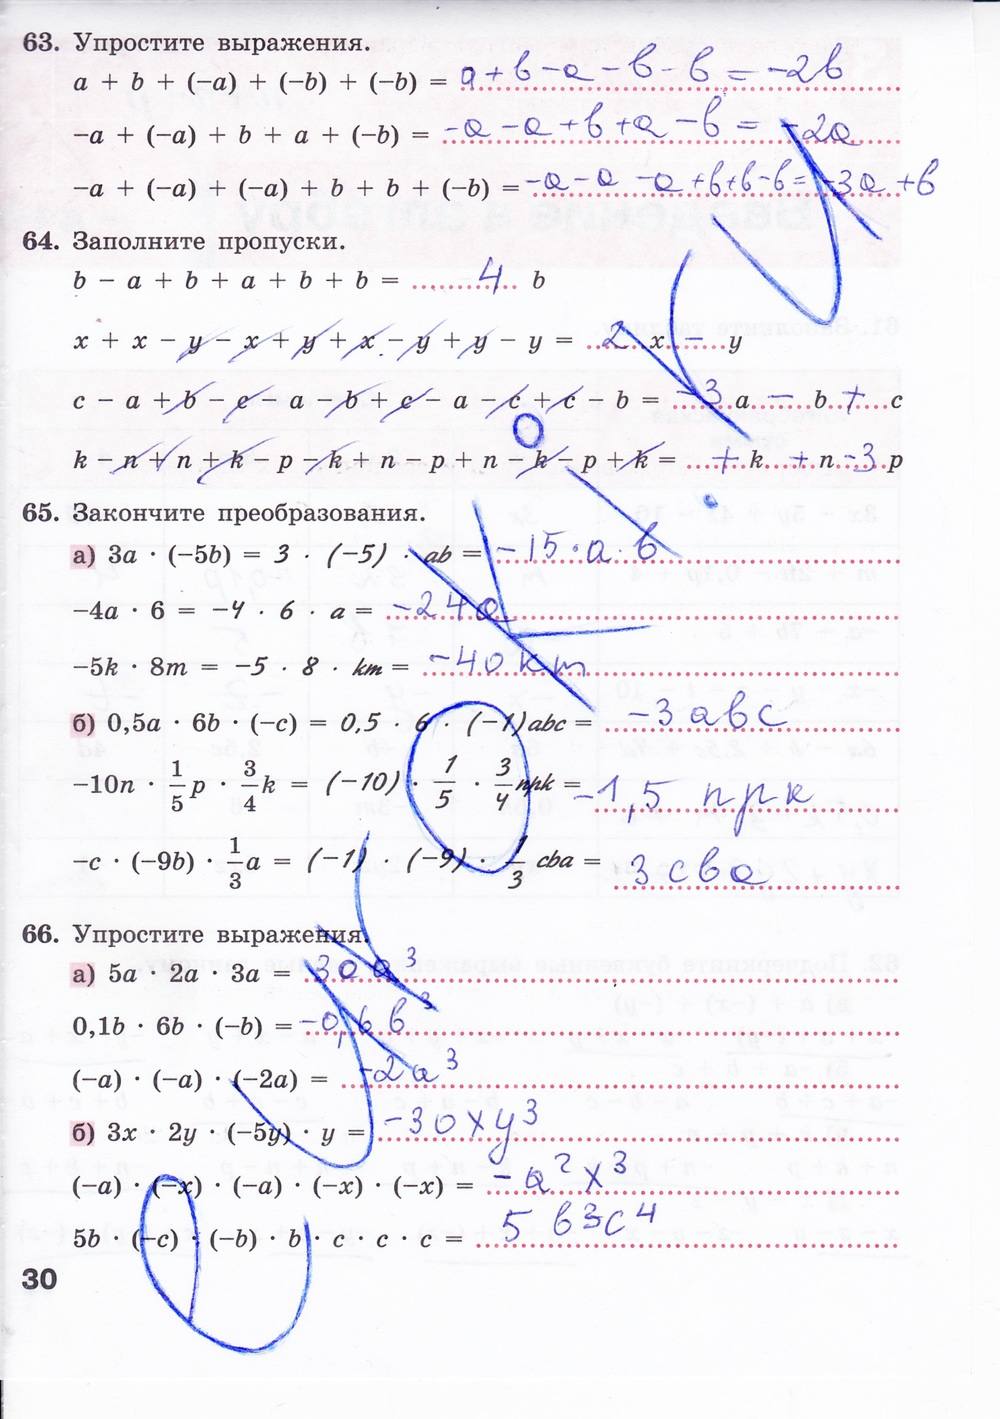 63. Упростите выражения.
a + b + (−a) + (−b) + (−b) = a+b−a−b−b = −2b
−a + (−a) + b + a + (−b) = −a−a+b+a−b = −2a
−a + (−a) + (−a) + b + b + (−b) = −a−a−a+b+b−b = −3a+b
64. Заполните пропуски.
b − a + b + a + b + b = 4 b
x + x − y − x + y + x − y + y − y = 2 x − y
c − a + b − c − a − b + c − a − c + c − b = −3 a − b + c
k − n + n + k − p − k + n − p + n − k − p + k = + k + n −3 p
65. Закончите преобразования.
а) 3a · (−5b) = 3 · (−5) · ab = −15·a·b
−4a · 6 = −4 · 6 · a = −24a
−5k · 8m = −5 · 8 · km = −40km
б) 0,5a · 6b · (−c) = 0,5 · 6 · (−1)abc = −3abc
−10n · 1/5 p · 3/4 k = (−10) · 1/5 · 3/4 npk = −1,5 npk
−c · (−9b) · 1/3 a = (−1) · (−9) · 1/3 cba = 3cba
66. Упростите выражения.
а) 5a · 2a · 3a = 30a³
0,1b · 6b · (−b) = −0,6b³
(−a) · (−a) · (−2a) = −2a³
б) 3x · 2y · (−5y) · y = −30xy³
(−a) · (−x) · (−a) · (−x) · (−x) = −a²x³
5b · (−c) · (−b) · b · c · c · c = 5b³c⁴
30